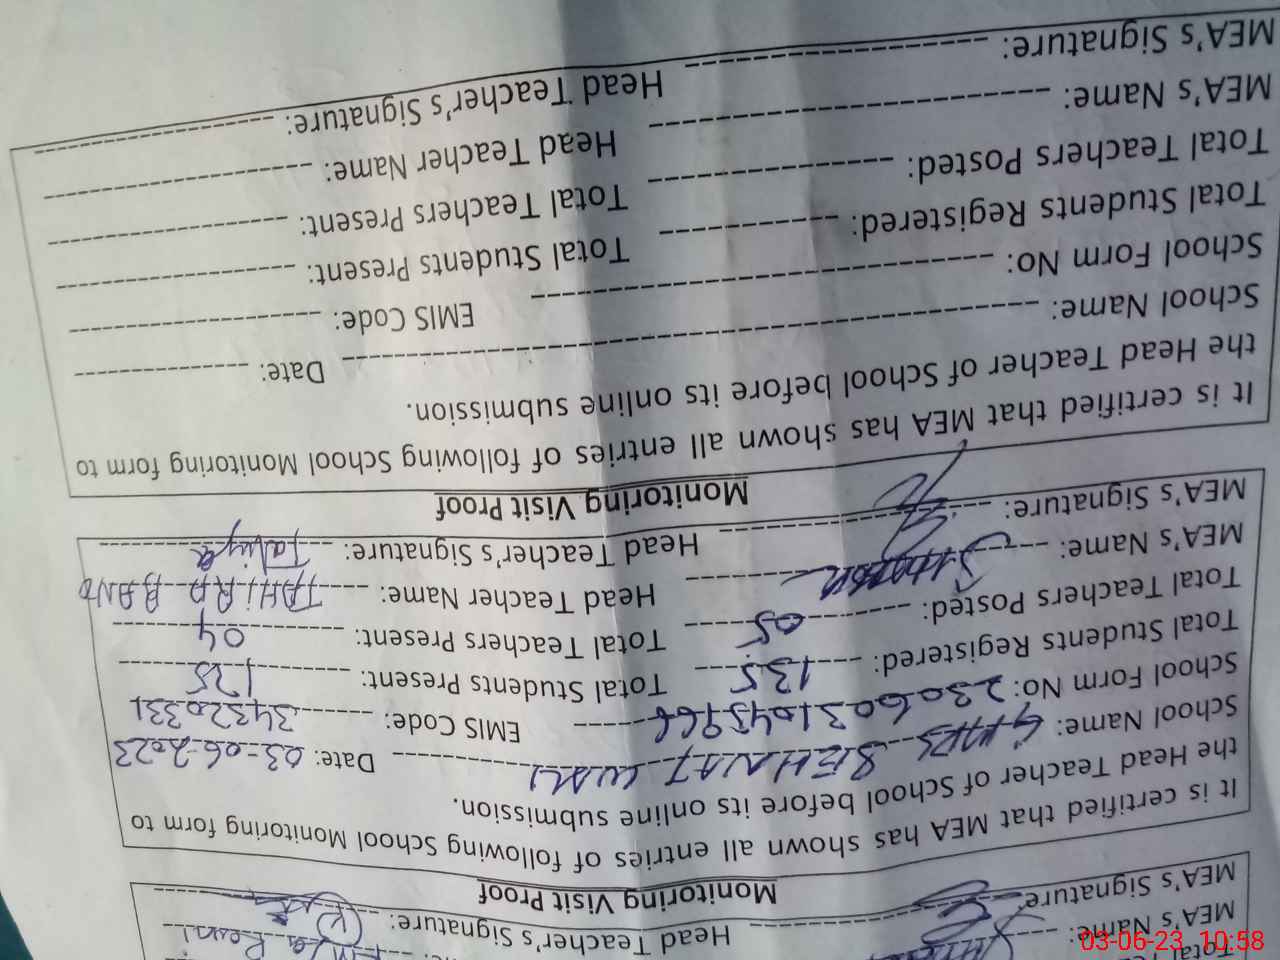 Total
MEA's Name:
MEA's Signature: Head Teacher's Signature:
Monitoring Visit Proof
It is certified that MEA has shown all entries of following School Monitoring form to
the Head Teacher of School before its online submission.
School Name: Date: 03-06-2023
School Form No: EMIS Code: 34320331
Total Students Registered: 135 Total Students Present: 125
Total Teachers Posted: 05 Total Teachers Present: 04
MEA's Name: Head Teacher Name: TAHIRA BANO
MEA's Signature: Head Teacher's Signature: Tahira
Monitoring Visit Proof
It is certified that MEA has shown all entries of following School Monitoring form to
the Head Teacher of School before its online submission.
School Name: Date:
School Form No: EMIS Code:
Total Students Registered: Total Students Present:
Total Teachers Posted: Total Teachers Present:
MEA's Name: Head Teacher Name:
MEA's Signature: Head Teacher's Signature:
03-06-23 10:58